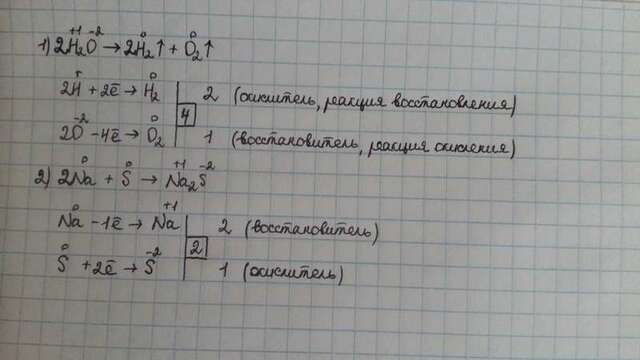 1) 2H₂⁺¹O⁻² → 2H₂⁰↑ + O₂⁰↑
2H⁺ + 2ē → H₂⁰ | 2 (окислитель, реакция восстановления)
4
2O⁻² - 4ē → O₂⁰ | 1 (восстановитель, реакция окисления)
2) 2Na⁰ + S⁰ → Na₂⁺¹S⁻²
Na⁰ - 1ē → Na⁺¹ | 2 (восстановитель)
2
S⁰ + 2ē → S⁻² | 1 (окислитель)